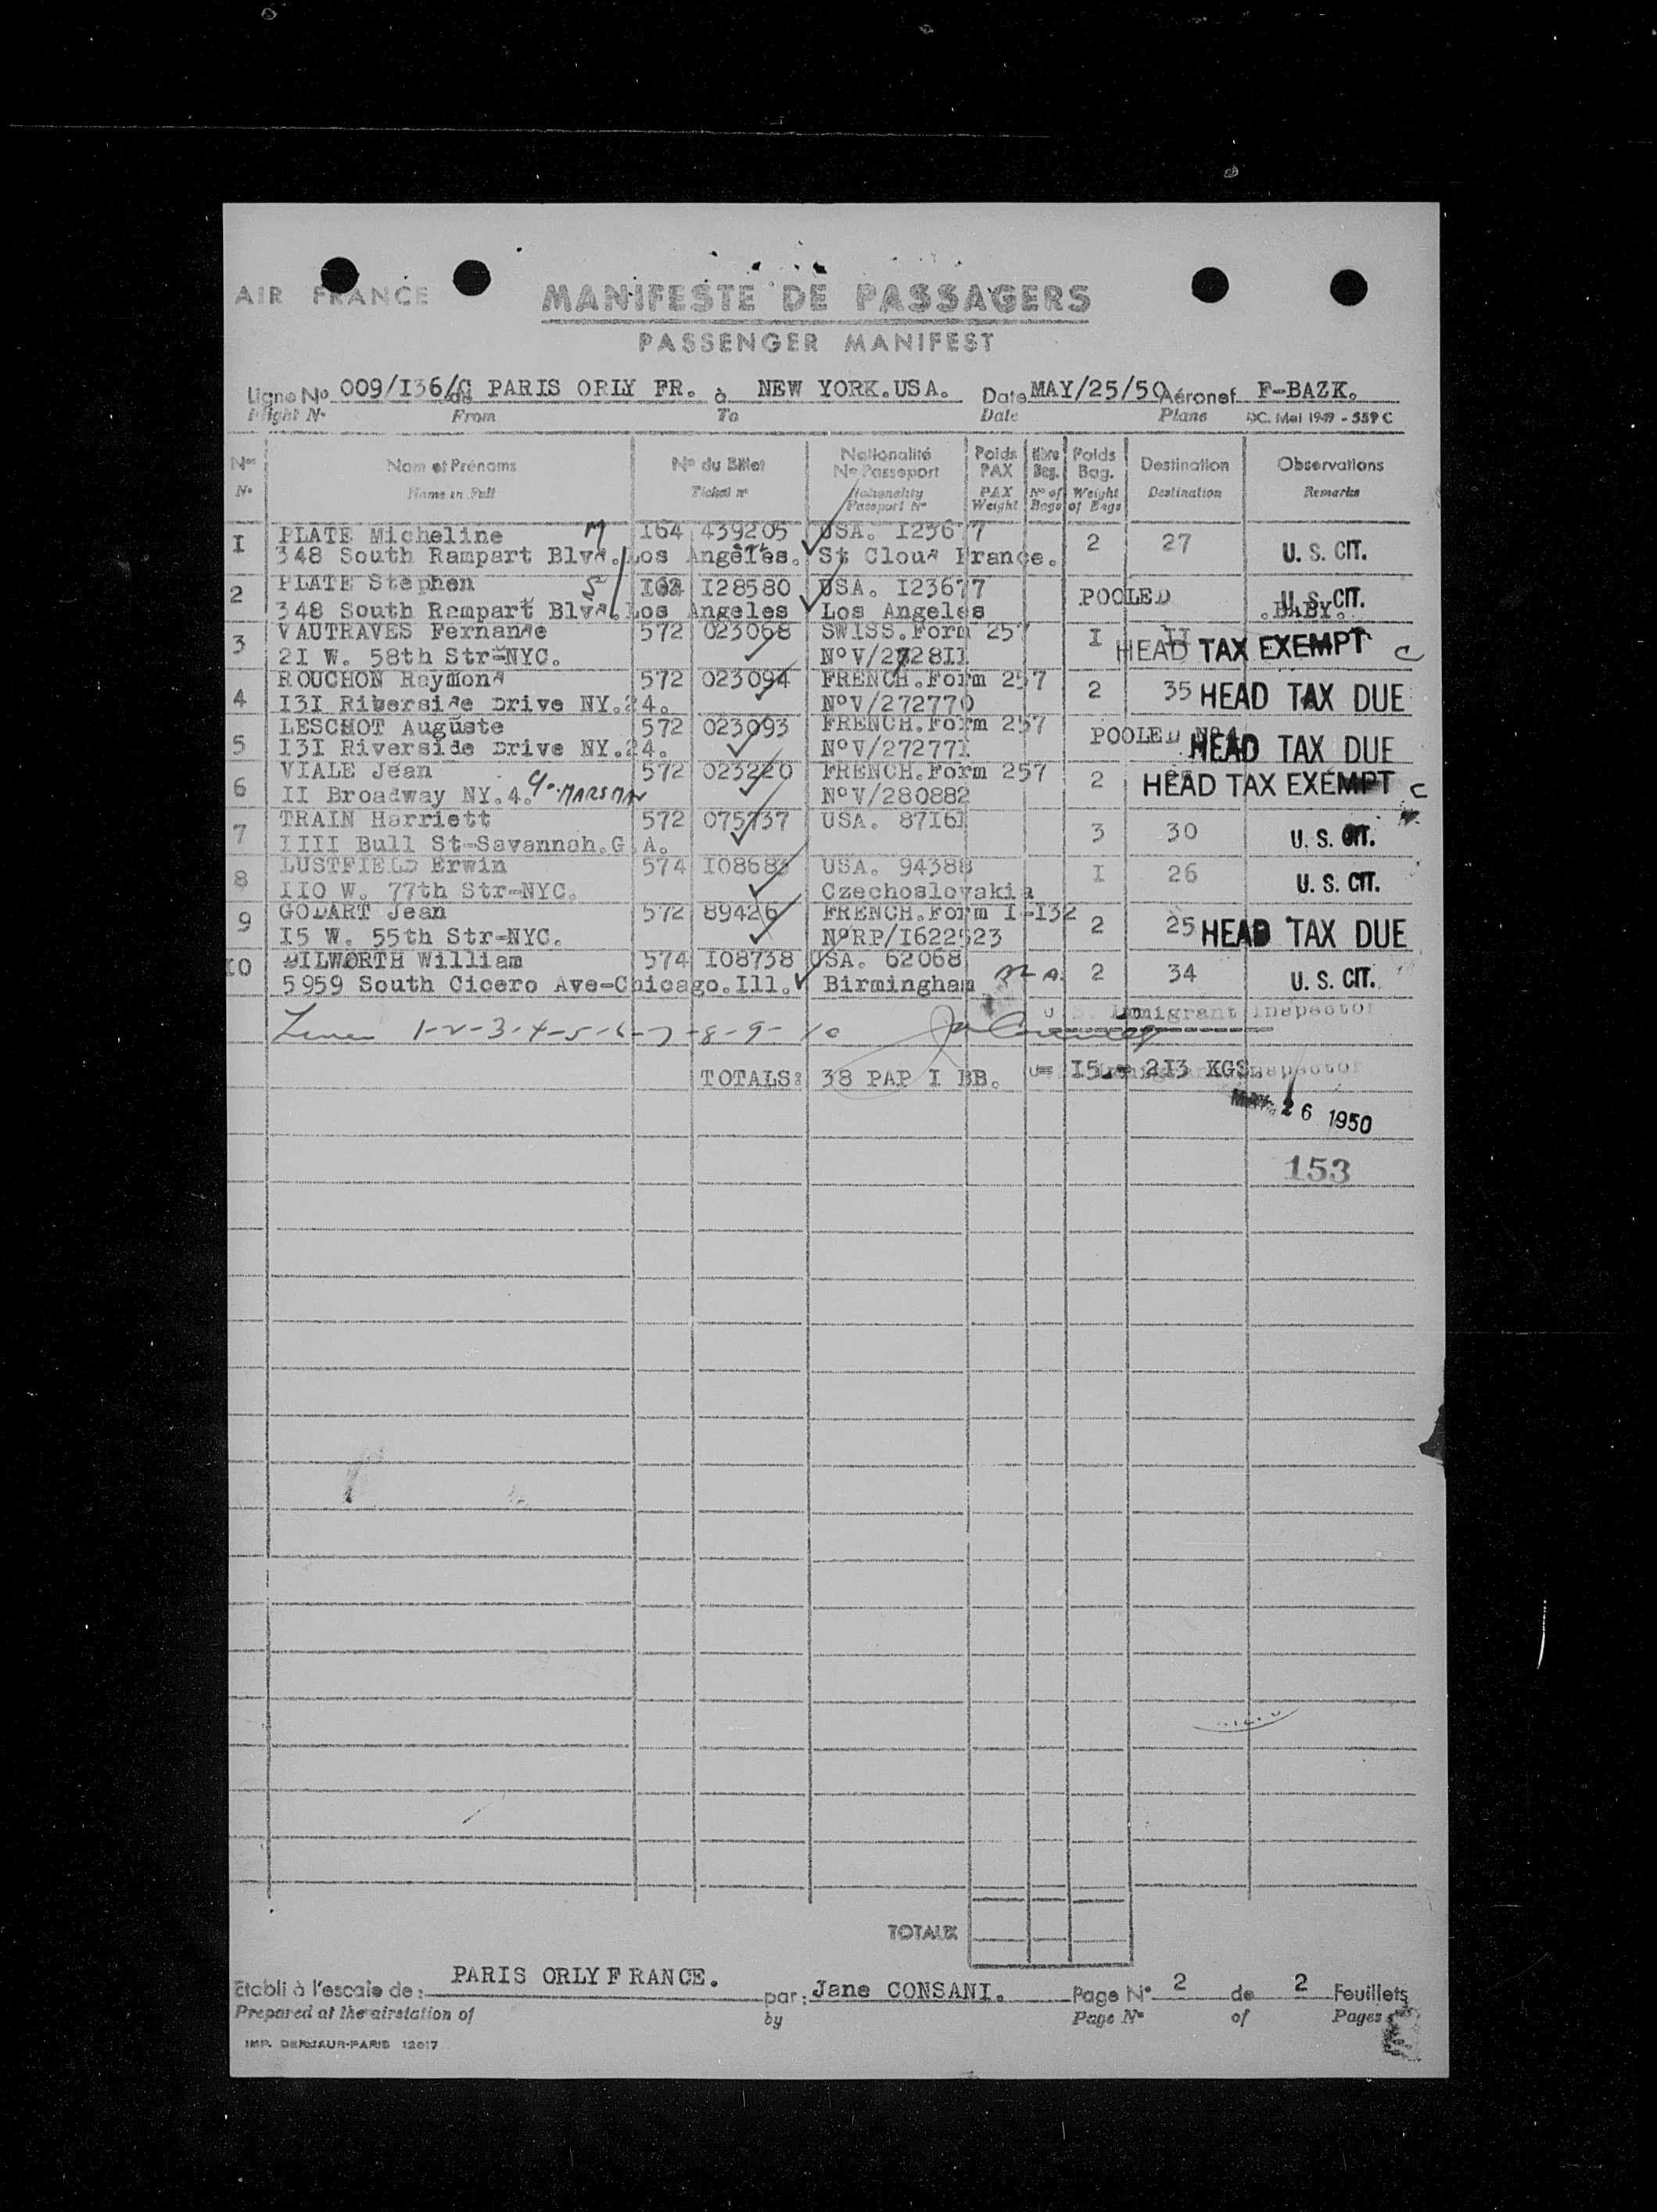 AIR FRANCE
MANIFESTE DE PASSAGERS
PASSENGER MANIFEST
Ligne No 009/I36/C de PARIS ORLY FR. à NEW YORK.USA. Date MAY/25/50 Aéronef F-BAZK.
Flight No From To Date Plane DC. Mai 1949 - 559 C
Nos Nom et Prénoms No du Billet Nationalité No Passeport Poids PAX Nbre Bag. Poids Bag. Destination Observations
No Name in Full Ticket no Nationality Passport No PAX Weight No of Bags Weight of Bags Destination Remarks
I PLATE Micheline M I64 439205 USA. I23677 2 27 U. S. CIT.
348 South Rampart Blvd. Los Angeles. St Cloud France.
2 PLATE Stephen S I62 I28580 USA. I23677 POOLED U. S. CIT.
348 South Rampart Blvd. Los Angeles Los Angeles .BABY.
3 VAUTRAVES Fernande 572 023068 SWISS.Form 257 I II HEAD TAX EXEMPT C
2I W. 58th Str-NYC. NoV/272811
4 ROUCHON Raymond 572 023094 FRENCH.Form 257 2 35 HEAD TAX DUE
I3I Riberside Drive NY.24. NoV/272770
5 LESCHOT Auguste 572 023093 FRENCH.Form 257 POOLED No4 HEAD TAX DUE
I3I Riverside Drive NY.24. NoV/272771
6 VIALE Jean 572 023220 FRENCH.Form 257 2 HEAD TAX EXEMPT C
II Broadway NY.4. c/o MARSMAN NoV/280882
7 TRAIN Harriett 572 075737 USA. 87I61 3 30 U. S. CIT.
IIII Bull St-Savannah.G.A.
8 LUSTFIELD Erwin 574 I08683 USA. 94388 I 26 U. S. CIT.
IIO W. 77th Str-NYC. Czechoslovakia
9 GODART Jean 572 89426 FRENCH.Form I-132 2 25 HEAD TAX DUE
I5 W. 55th Str-NYC. NoRP/I622523
IO DILWORTH William 574 I08738 USA. 62068 2 34 U. S. CIT.
5959 South Cicero Ave-Chicago.Ill. Birmingham
U.S. Immigrant Inspector
1-2-3-4-5-6-7-8-9-10
TOTALS: 38 PAP I BB. I5 213 KGS. Inspector
MAY 26 1950
153
TOTAUX
Etabli à l'escale de: PARIS ORLY FRANCE. par: Jane CONSANI. Page No 2 de 2 Feuillets
Prepared at the airstation of by Page No of Pages
IMP. DERMAUR-PARIS 12017